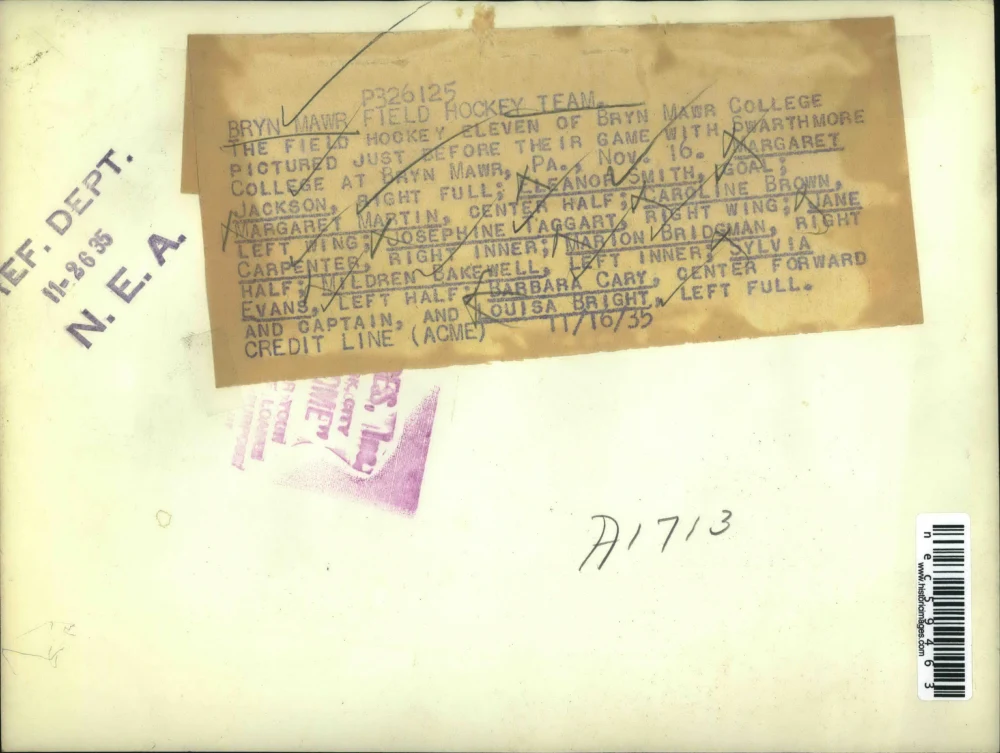 P326125
BRYN MAWR FIELD HOCKEY TEAM.
THE FIELD HOCKEY ELEVEN OF BRYN MAWR COLLEGE
PICTURED JUST BEFORE THEIR GAME WITH SWARTHMORE
COLLEGE AT BRYN MAWR, PA., NOV. 16. MARGARET
JACKSON, RIGHT FULL; ELEANOR SMITH, GOAL;
MARGARET MARTIN, CENTER HALF; CAROLINE BROWN,
LEFT WING; JOSEPHINE TAGGART, RIGHT WING; JANE
CARPENTER, RIGHT INNER; MARION BRIDGMAN, RIGHT
HALF; MILDREN BAKEWELL, LEFT INNER; SYLVIA
EVANS, LEFT HALF; BARBARA CARY, CENTER FORWARD
AND CAPTAIN, AND LOUISA BRIGHT, LEFT FULL.
CREDIT LINE (ACME) 11/16/35
EF. DEPT.
11-26 35
N. E. A.
ES, Inc.
K CITY
A1713
nec59463
www.historicimages.com